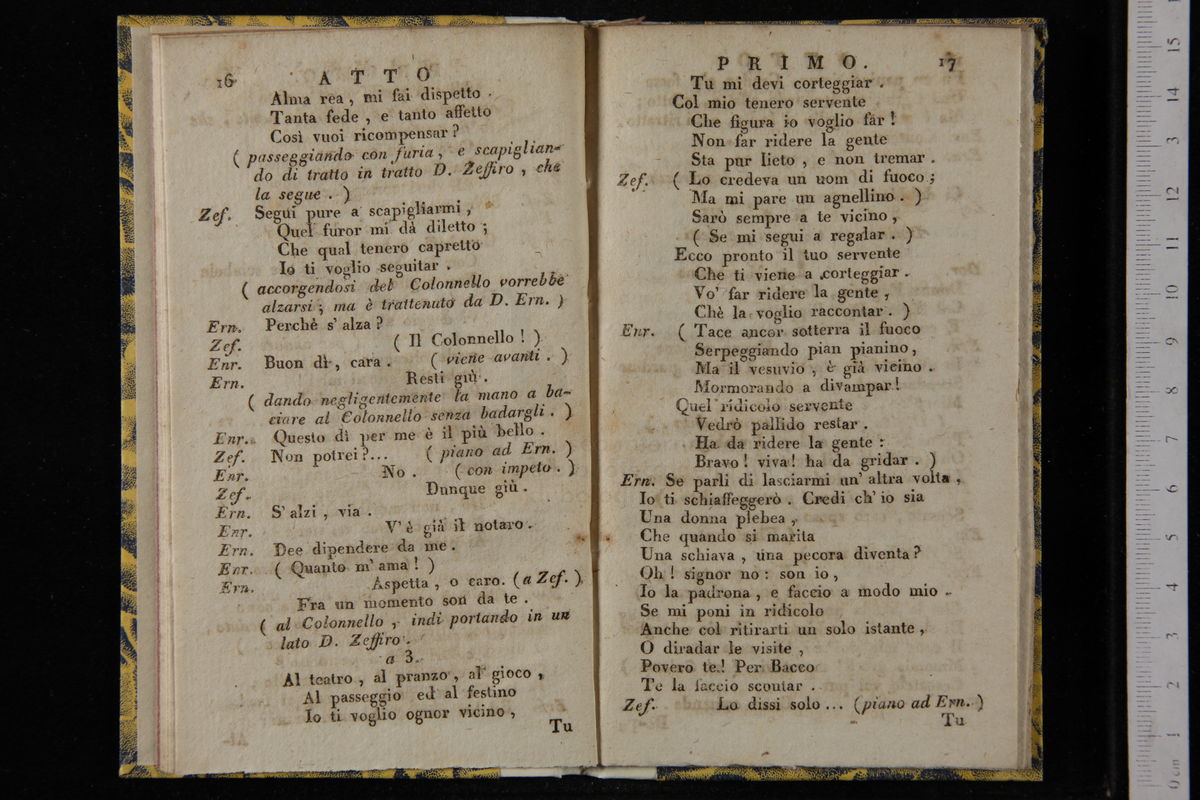 16 ATTO
Alma rea, mi fai dispetto.
Tanta fede, e tanto affetto
Così vuoi ricompensar?
( passeggiando con furia, e scapiglian-
do di tratto in tratto D. Zeffiro, che
la segue. )
Zef. Segui pure a scapigliarmi,
Quel furor mi dà diletto;
Che qual tenero capretto
Io ti voglio seguitar.
( accorgendosi del Colonnello vorrebbe
alzarsi; ma è trattenuto da D. Ern. )
Ern. Perchè s'alza?
Zef. ( Il Colonnello! )
Enr. Buon dì, cara. ( viene avanti. )
Ern. Resti giù.
( dando negligentemente la mano a ba-
ciare al Colonnello senza badargli. )
Enr. Questo dì per me è il più bello.
Zef. Non potrei?... ( piano ad Ern. )
Enr. No. ( con impeto. )
Zef. Dunque giù.
Ern. S'alzi, via.
Enr. V'è già il notaro.
Ern. Dee dipendere da me.
Enr. ( Quanto m'ama! )
Ern. Aspetta, o caro. ( a Zef. )
Fra un momento son da te.
( al Colonnello, indi portando in un
lato D. Zeffiro.
a 3.
Al teatro, al pranzo, al gioco,
Al passeggio ed al festino
Io ti voglio ognor vicino,
Tu
PRIMO. 17
Tu mi devi corteggiar.
Col mio tenero servente
Che figura io voglio far!
Non far ridere la gente
Sta pur lieto, e non tremar.
Zef. ( Lo credeva un uom di fuoco;
Ma mi pare un agnellino. )
Sarò sempre a te vicino,
( Se mi segui a regalar. )
Ecco pronto il tuo servente
Che ti viene a corteggiar.
Vo' far ridere la gente,
Chè la voglio raccontar. )
Enr. ( Tace ancor sotterra il fuoco
Serpeggiando pian pianino,
Ma il vesuvio, è già vicino.
Mormorando a divampar!
Quel ridicolo servente
Vedrò pallido restar.
Ha da ridere la gente:
Bravo! viva! ha da gridar. )
Ern. Se parli di lasciarmi un' altra volta,
Io ti schiaffeggerò. Credi ch'io sia
Una donna plebea,
Che quando si marita
Una schiava, una pecora diventa?
Oh! signor no: son io,
Io la padrona, e faccio a modo mio.
Se mi poni in ridicolo
Anche col ritirarti un solo istante,
O diradar le visite,
Povero te! Per Bacco
Te la faccio scontar.
Zef. Lo dissi solo... (piano ad Ern.)
Tu